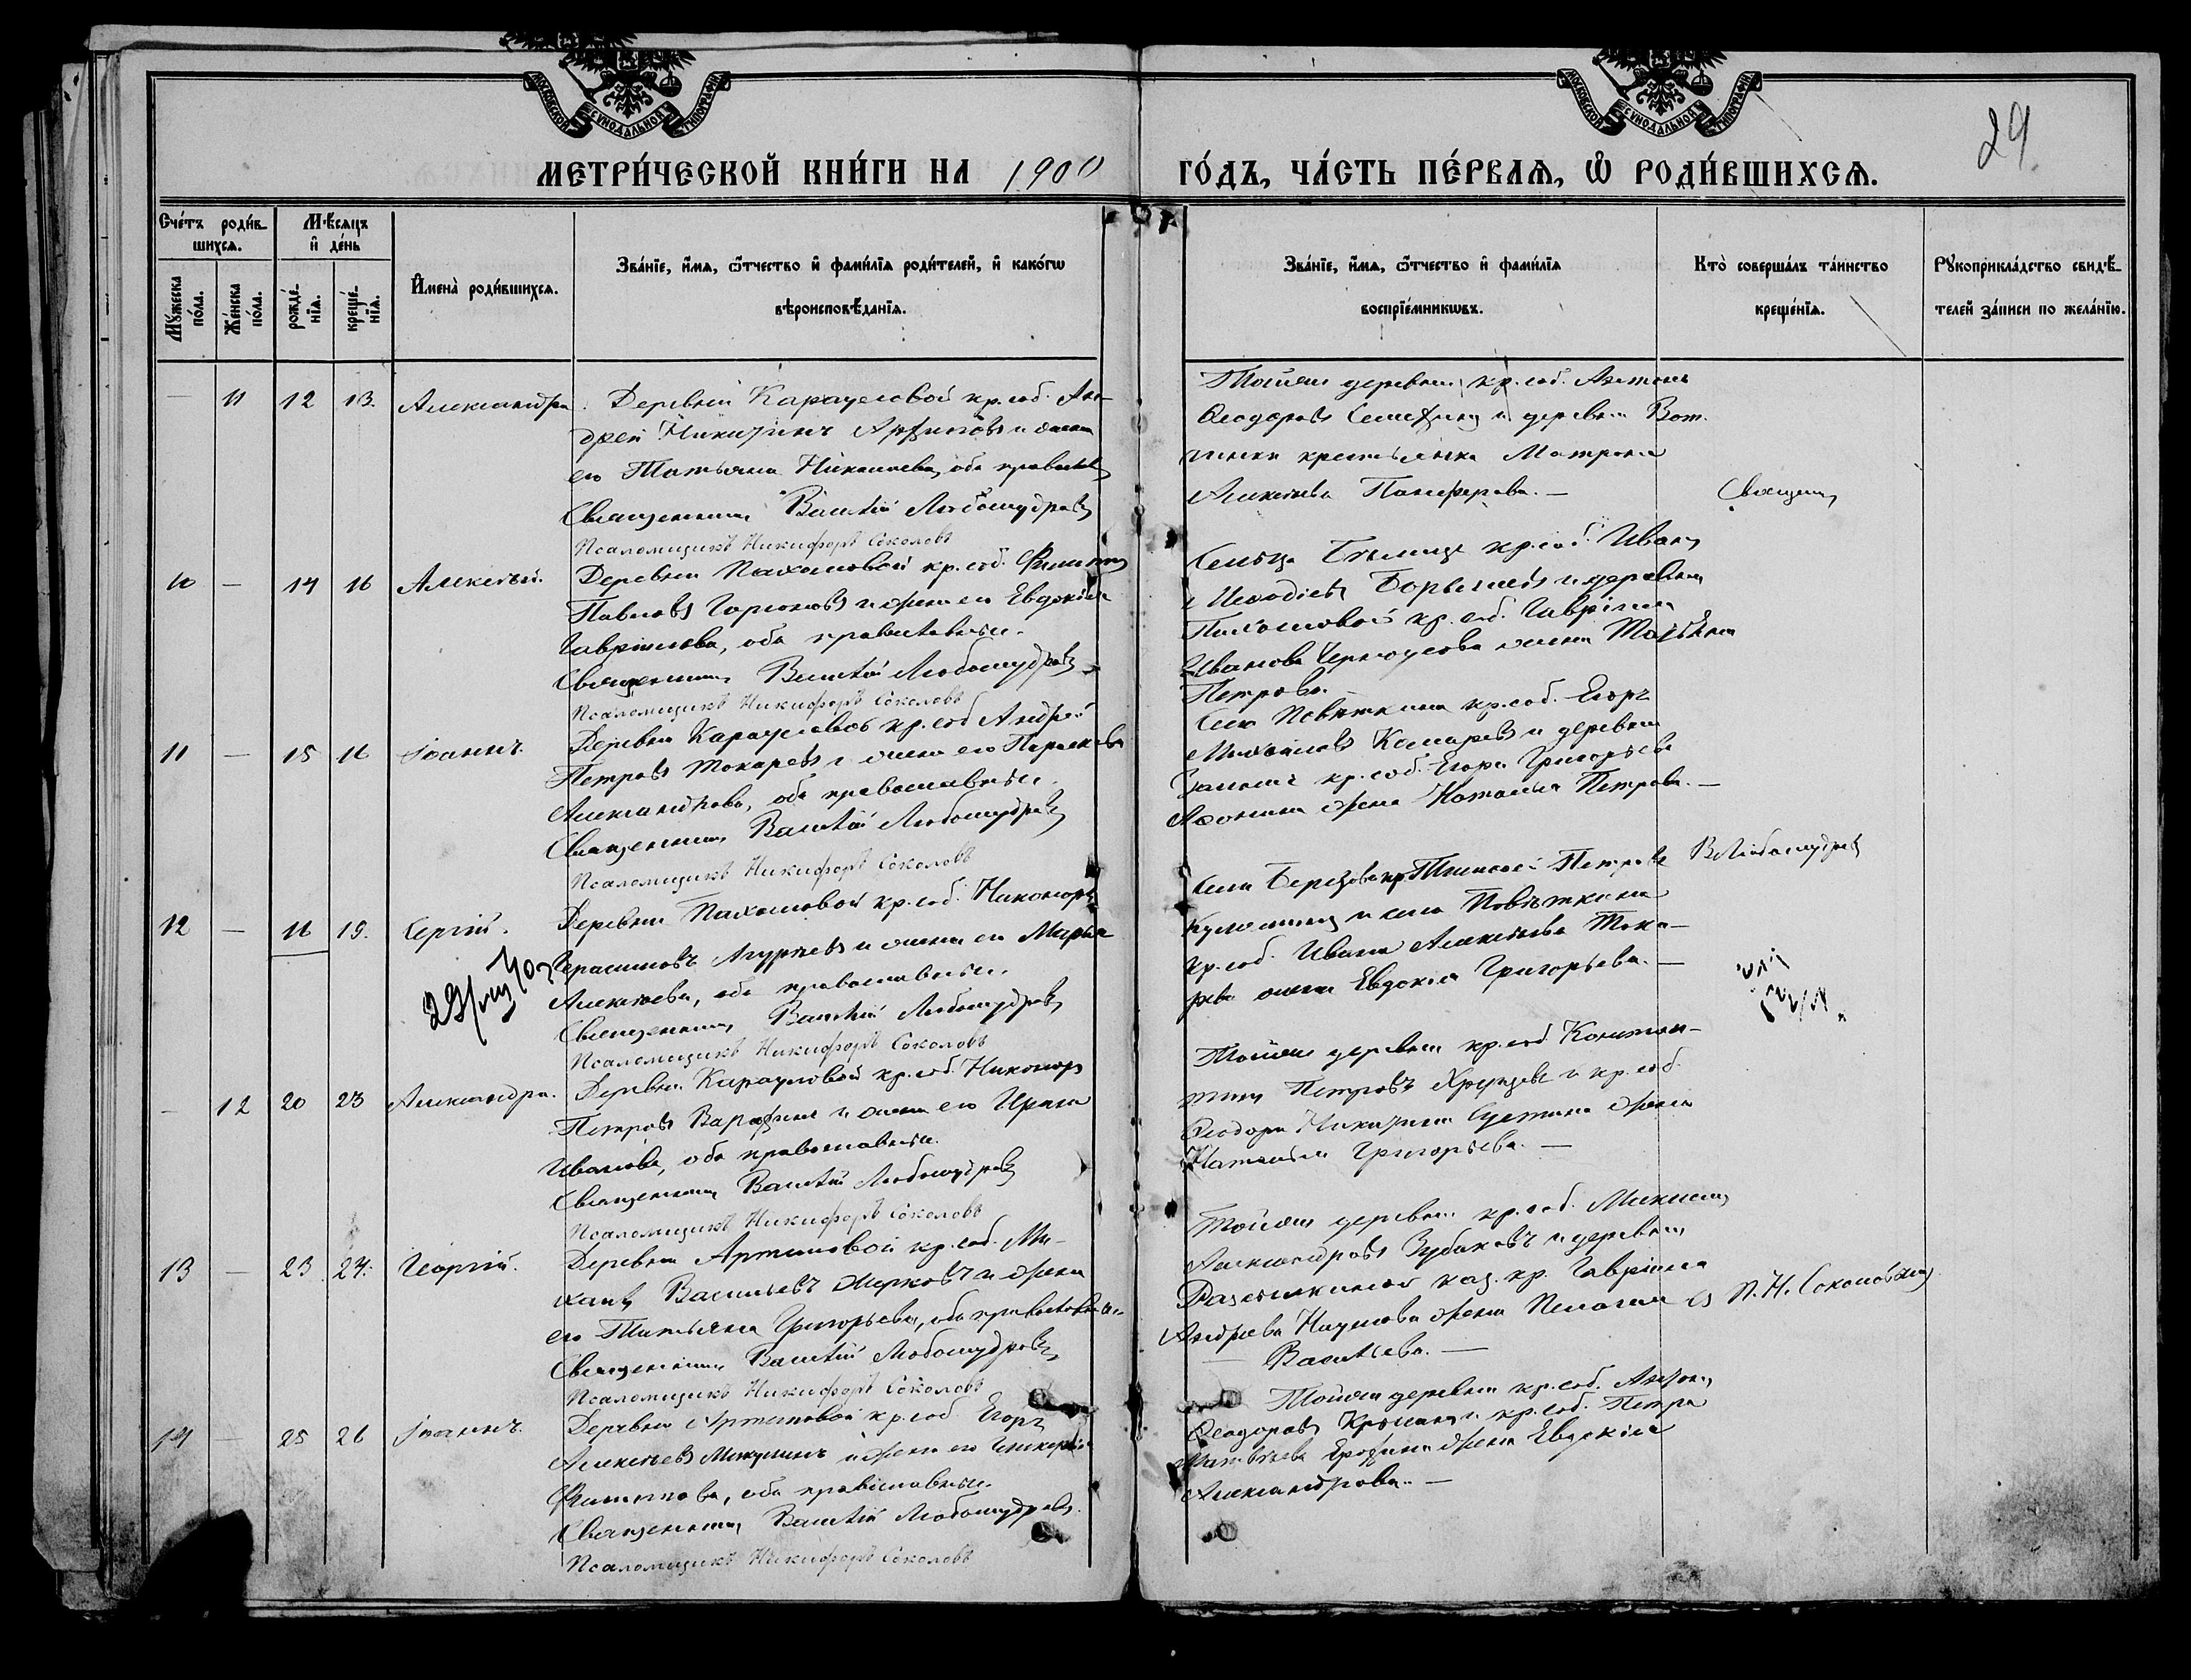 МОСКОВСКОЙ СУНОДАЛЬНОЙ ТИПОГРАФІИ
МОСКОВСКОЙ СУНОДАЛЬНОЙ ТИПОГРАФІИ
29
МЕТРИ́ЧЕСКОЙ КНИ́ГИ НА 1900 ГО́ДЪ, ЧА́СТЬ ПЕ́РВАѦ, Ѡ҆ РОДИ́ВШИХСѦ.
Сче́тъ роди́в-
шихсѧ.
Му́жеска по́ла.
Же́нска по́ла.
Мѣ́сѧцъ
и҆ де́нь
рожде́-
нїѧ.
креще́-
нїѧ.
И҆мена̀ роди́вшихсѧ.
Зва́нїе, и҆́мѧ, ѻ҆́тчество и҆ фами́лїѧ роди́телей, и҆ како́гѡ
вѣроисповѣ́данїѧ.
Зва́нїе, и҆́мѧ, ѻ҆́тчество и҆ фами́лїѧ
воспрїе́мникѡвъ.
Кто̀ соверша́лъ та́инство
креще́нїѧ.
Рꙋкоприкла́дство свидѣ́-
телей за́писи по жела́нїю.
— 11 12 13. Александра. Деревни Карауловой кр. соб. Ан-
дрей Никитинъ и жена
его Татьяна Николаева, оба православн
Священникъ Василій Любомудровъ
Псаломщикъ Никифоръ Соколовъ
Тойже деревни кр. соб. Антонъ
Ѳеодоровъ и деревни Вот-
чинки крестьянка Матрона
Алексѣева Панферова. —
Священ
10 — 14 16 Алексѣй. Деревни Пахомовой кр. соб. Филиппъ
Павловъ Горюновъ и жена его Евдокія
Гавріилова, оба православные.
Священникъ Василій Любомудровъ
Псаломщикъ Никифоръ Соколовъ
Сельца кр. соб. Иванъ
и деревни
Пахомовой кр. соб. Гавріила
Иванова Черноусова жена Татьяна
Петрова.
11 — 15 16 Іоаннъ. Деревни Карауловой кр. соб Андрей
Петровъ Токаревъ и жена его Параскева
Александрова, оба православные.
Священникъ Василій Любомудровъ
Псаломщикъ Никифоръ Соколовъ
Села Повѣткина кр. соб. Егоръ
Михайловъ Комаревъ и деревни
кр. соб. Егора Григорьева
Аѳонина жена Наталья Петрова. —
12 — 16 19. Сергій. Деревни Пахомовой кр. соб. Никаноръ
Герасимовъ Агуреевъ и жена его Марѳа
Алексѣева, оба православные.
Священникъ Василій Любомудровъ
Псаломщикъ Никифоръ Соколовъ
Села Березова кр. Тимоѳей Петровъ
и села Повѣткина
кр. соб. Ивана Алексѣева Тока-
рева жена Евдокія Григорьева. —
В. Любомудровъ
— 12 20 23 Александра. Деревни Карауловой кр. соб. Никаноръ
Петровъ и жена его Ирина
Иванова, оба православные.
Священникъ Василій Любомудровъ
Псаломщикъ Никифоръ Соколовъ
Тойже деревни кр. соб Констан-
тинъ Петровъ и кр. соб.
Ѳеодора Никитина жена
Наталья Григорьева. —
13 — 23 24. Георгій. Деревни Артемовой кр. соб. Ми-
хаилъ Васильевъ Жерковъ и жена
его Татьяна Григорьева, оба православные.
Священникъ Василій Любомудровъ
Псаломщикъ Никифоръ Соколовъ
Тойже деревни кр. соб. Максимъ
Александровъ Зубаковъ и деревни
каз. кр. Гавріила
Андреева Наумова жена Пелагія
Васильева. —
съ П. Н. Соколовымъ
14 — 25 26 Іоаннъ. Деревни Артемовой кр. соб Егоръ
Алексѣевъ Микулинъ и жена его Гликерія
Филиппова, оба православные.
Священникъ Василій Любомудровъ.
Псаломщикъ Никифоръ Соколовъ
Тойже деревни кр. соб. Антонъ
Ѳеодоровъ и кр. соб. Петра
Матвѣева жена Евдокія
Александрова. —